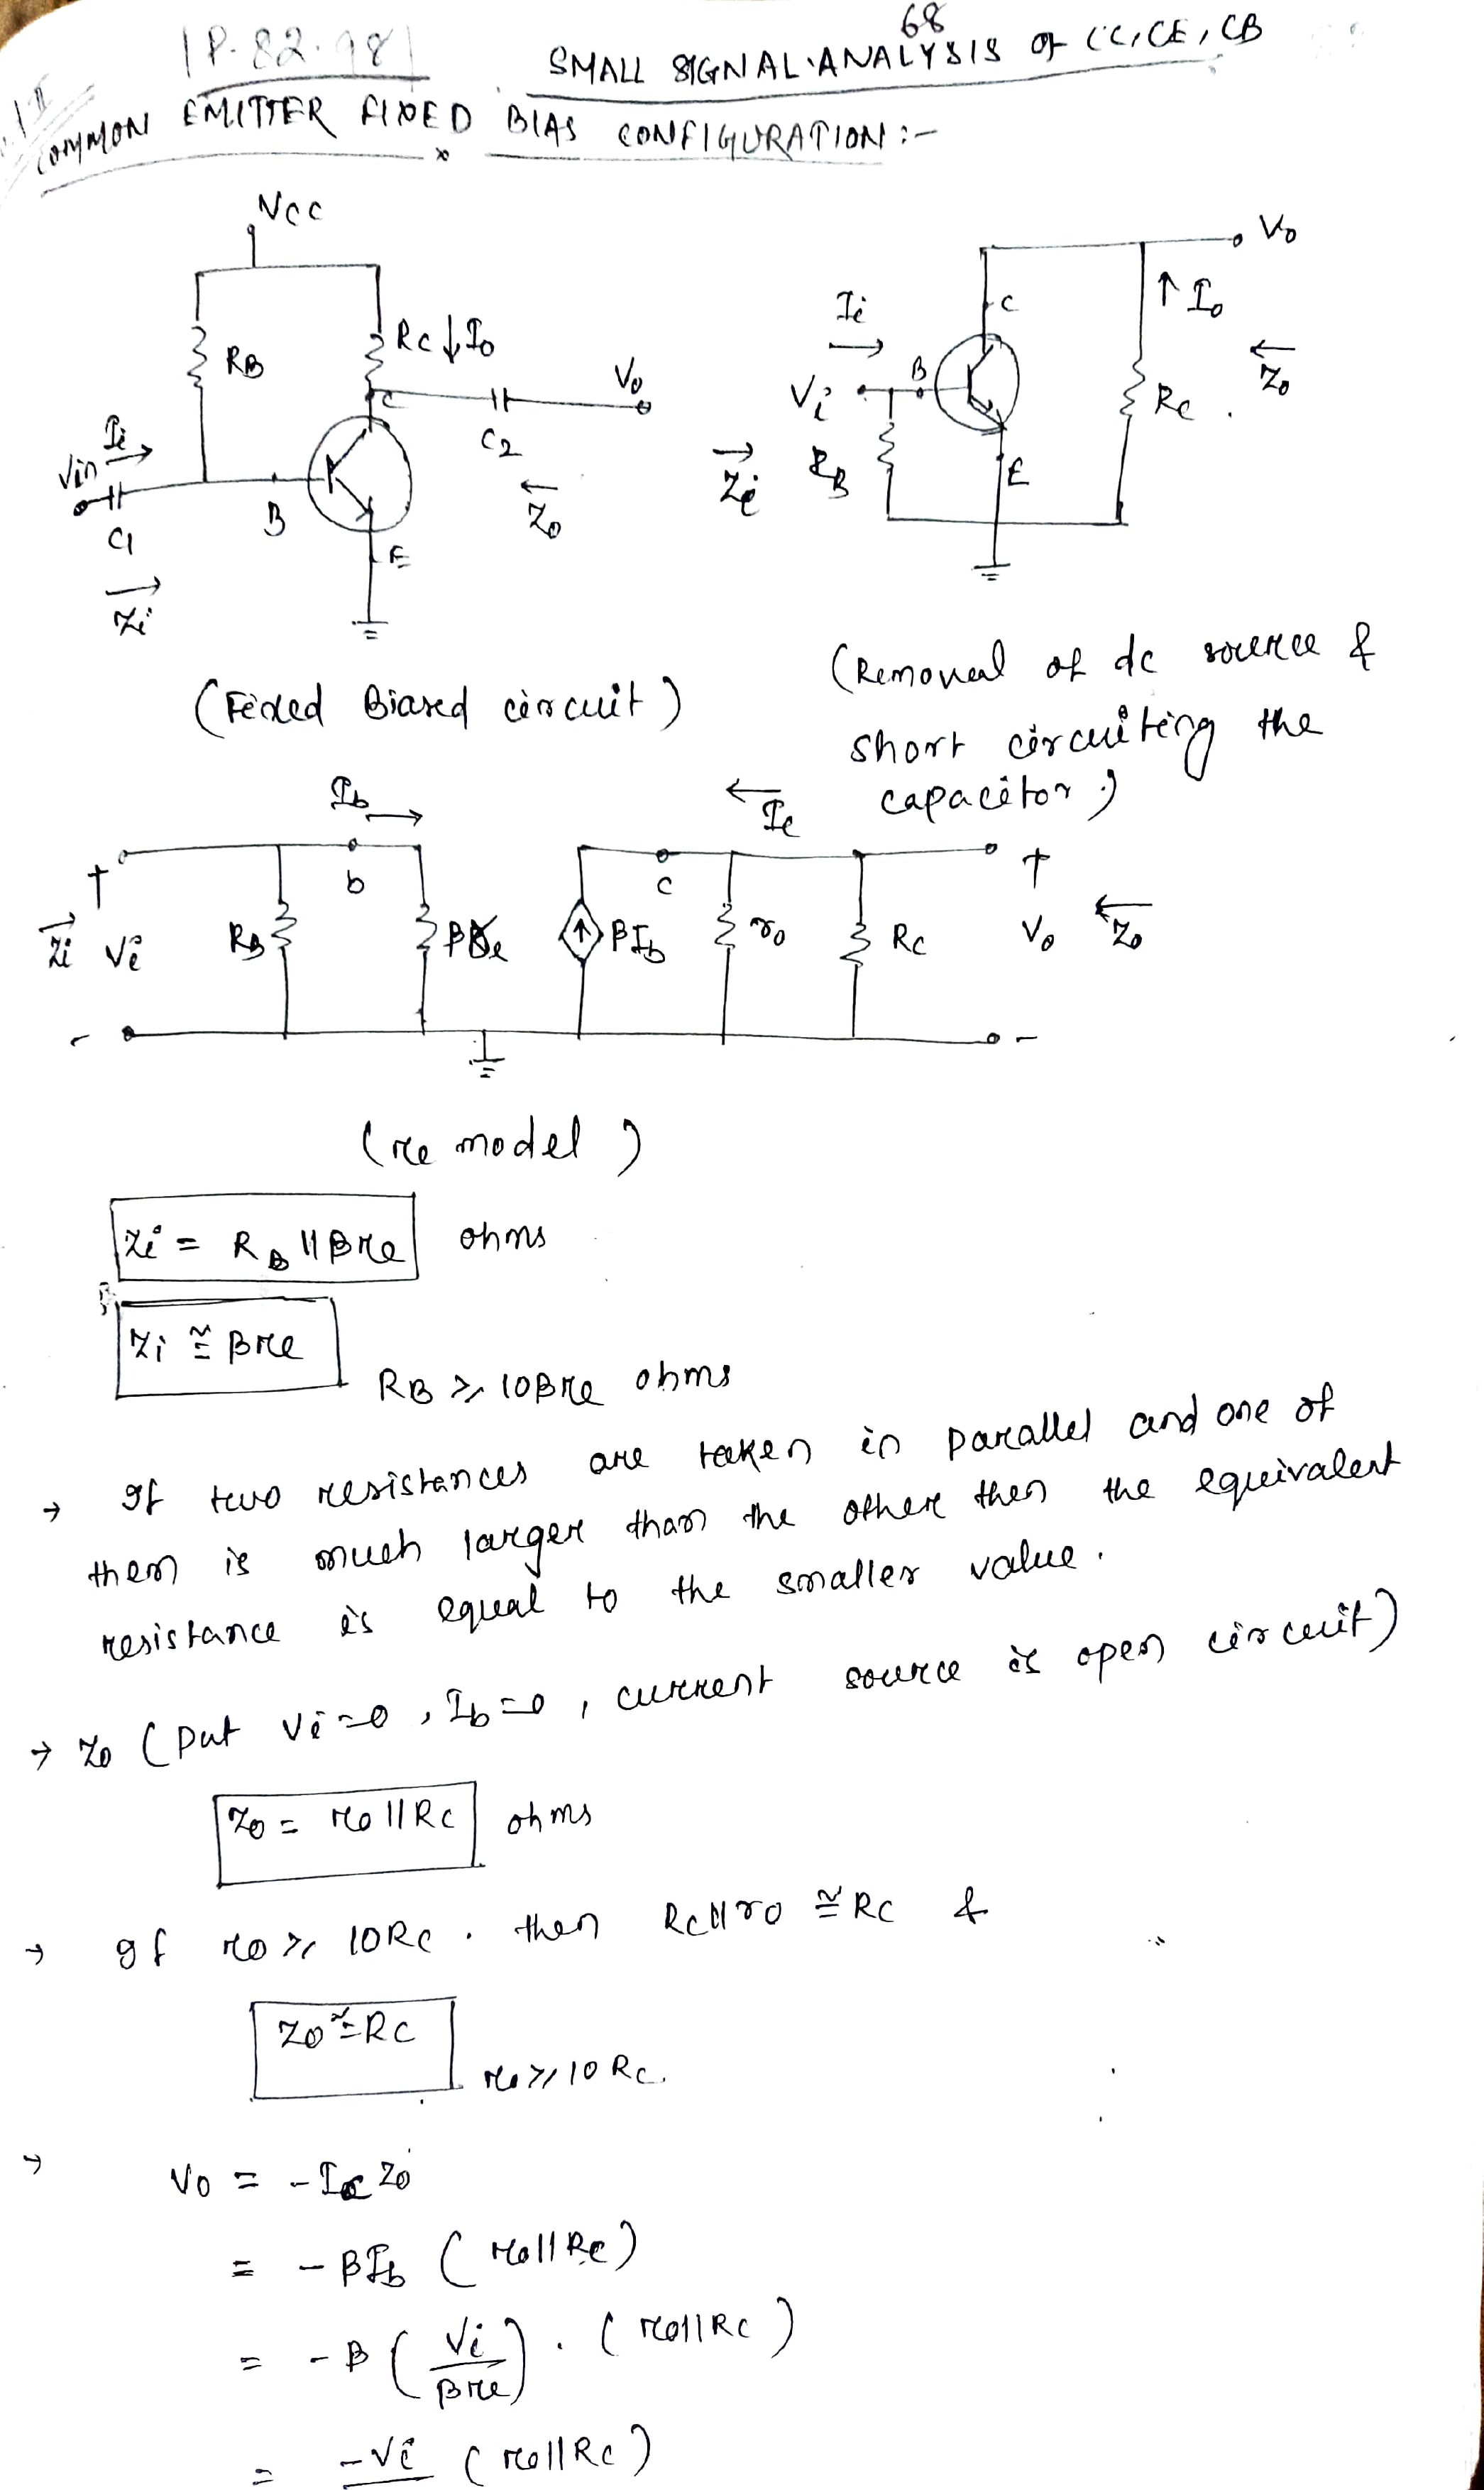 68
P. 82.98
SMALL SIGNAL ANALYSIS of CC, CE, CB
COMMON EMITTER FIXED BIAS CONFIGURATION :-
VCC
RB
RC ↓ Io
C
C2
Vo
Vin
Ii →
C1
B
E
← Zo
→ Zi
(Fixed Biased circuit)
Ii →
Vi
B
C
E
RB
→ Zi
Vo
↑ Io
RC
← Zo
(Removal of dc source &
short circuiting the
capacitor)
Ib →
b
+
Vi
-
→ Zi
RB
βre
βIb
c
← Ic
ro
RC
+
Vo
-
← Zo
(re model)
Zi = RB || Bre ohms
Zi ≅ Bre
RB ≥ 10Bre ohms
→ If two resistances are taken in parallel and one of
them is much larger than the other then the equivalent
resistance is equal to the smaller value.
→ Zo (Put Vi=0, Ib=0, current source is open circuit)
Zo = ro || RC ohms
→ If ro ≥ 10RC. then RC || ro ≅ RC &
Zo ≅ RC
ro ≥ 10 RC.
→ Vo = - Ic Zo
= - βIb (ro || RC)
= - B (Vi / Bre) . (ro || RC)
= -Vi (ro || RC)